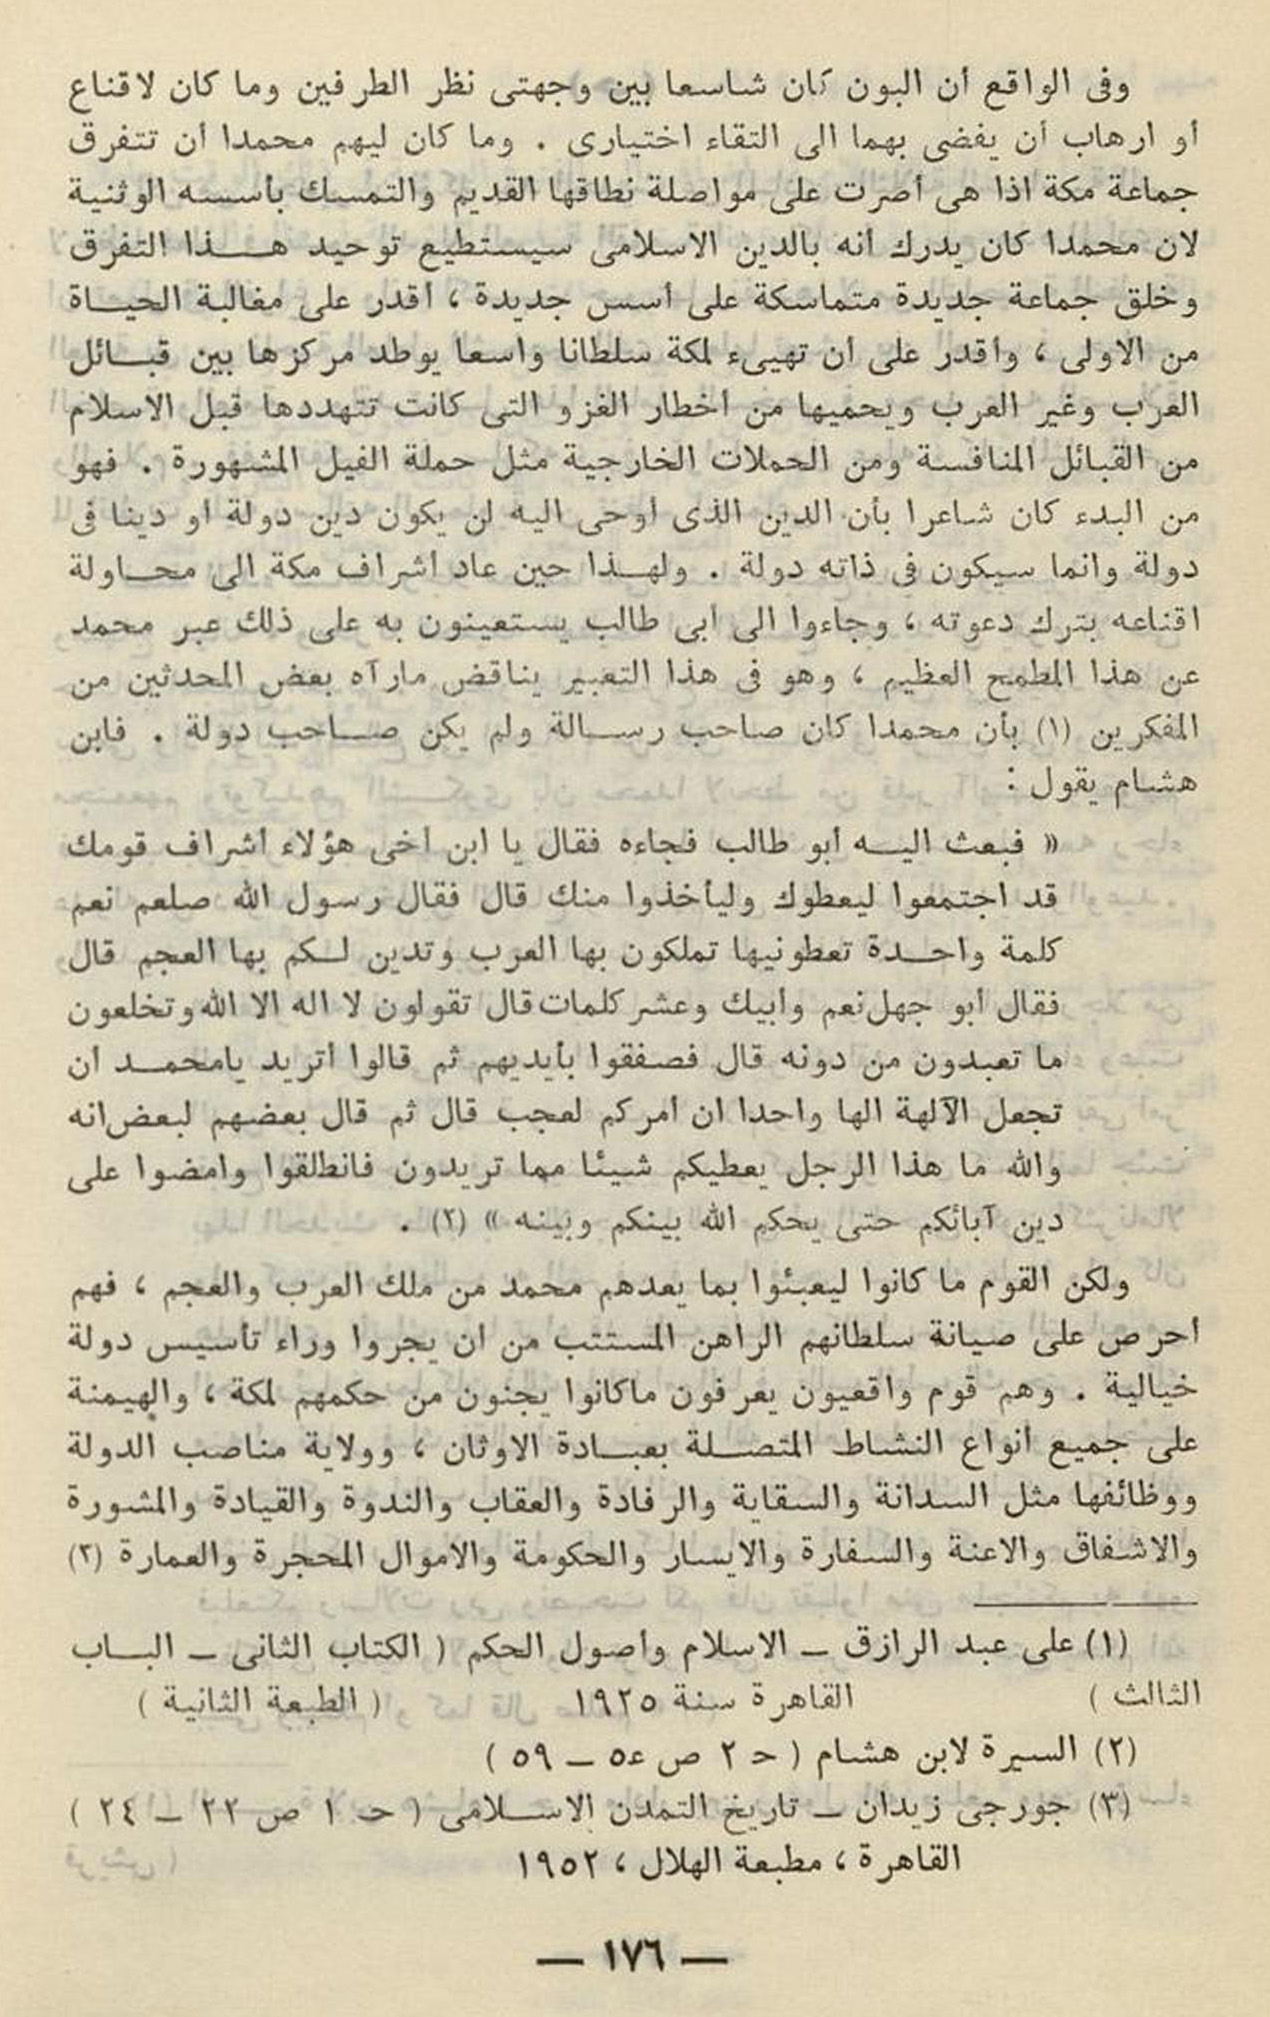 وفى الواقع أن البون كان شاسعا بين وجهتى نظر الطرفين وما كان لاقناع
أو ارهاب أن يفضى بهما الى التقاء اختيارى . وما كان ليهم محمدا أن تتفرق
جماعة مكة اذا هى أصرت على مواصلة نطاقها القديم والتمسك بأسسه الوثنية
لان محمدا كان يدرك أنه بالدين الاسلامى سيستطيع توحيد هذا التفرق
وخلق جماعة جديدة متماسكة على أسس جديدة ، أقدر على مغالبة الحياة
من الاولى ، وأقدر على أن تهيىء لمكة سلطانا واسعا يوطد مركزها بين قبائل
العرب وغير العرب ويحميها من أخطار الغزو التى كانت تتهددها قبل الاسلام
من القبائل المنافسة ومن الحملات الخارجية مثل حملة الفيل المشهورة . فهو
من البدء كان شاعرا بأن الدين الذى أوحى اليه لن يكون دين دولة أو دينا فى
دولة وانما سيكون فى ذاته دولة . ولهذا حين عاد أشراف مكة الى محاولة
اقناعه بترك دعوته ، وجاءوا الى أبى طالب يستعينون به على ذلك عبر محمد
عن هذا المطمح العظيم ، وهو فى هذا التعبير يناقض مارآه بعض المحدثين من
المفكرين (١) بأن محمدا كان صاحب رسالة ولم يكن صاحب دولة . فابن
هشام يقول :
« فبعث اليه أبو طالب فجاءه فقال يا ابن أخى هؤلاء أشراف قومك
قد اجتمعوا ليعطوك وليأخذوا منك قال فقال رسول الله صلعم نعم
كلمة واحدة تعطونيها تملكون بها العرب وتدين لكم بها العجم قال
فقال أبو جهل نعم وأبيك وعشر كلمات قال تقولون لا اله الا الله وتخلعون
ما تعبدون من دونه قال فصفقوا بأيديهم ثم قالوا أتريد يامحمد أن
تجعل الآلهة الها واحدا ان أمركم لعجب قال ثم قال بعضهم لبعض انه
والله ما هذا الرجل يعطيكم شيئا مما تريدون فانطلقوا وامضوا على
دين آبائكم حتى يحكم الله بينكم وبينه » (٢) .
ولكن القوم ما كانوا ليعبئوا بما يعدهم محمد من ملك العرب والعجم ، فهم
أحرص على صيانة سلطانهم الراهن المستتب من أن يجروا وراء تأسيس دولة
خيالية . وهم قوم واقعيون يعرفون ماكانوا يجنون من حكمهم لمكة ، والهيمنة
على جميع أنواع النشاط المتصلة بعبادة الاوثان ، وولاية مناصب الدولة
ووظائفها مثل السدانة والسقاية والرفادة والعقاب والندوة والقيادة والمشورة
والاشفاق والاعنة والسفارة والايسار والحكومة والاموال المحجرة والعمارة (٣)
(١) على عبد الرازق ـ الاسلام وأصول الحكم ( الكتاب الثانى ـ الباب
الثالث ) القاهرة سنة ١٩٢٥ ( الطبعة الثانية )
(٢) السيرة لابن هشام ( حـ ٢ ص ٥٤ ـ ٥٩ )
(٣) جورجى زيدان ـ تاريخ التمدن الاسلامى ( حـ ١ ص ٢٢ ـ ٢٤ )
القاهرة ، مطبعة الهلال ، ١٩٥٢
— ١٧٦ —